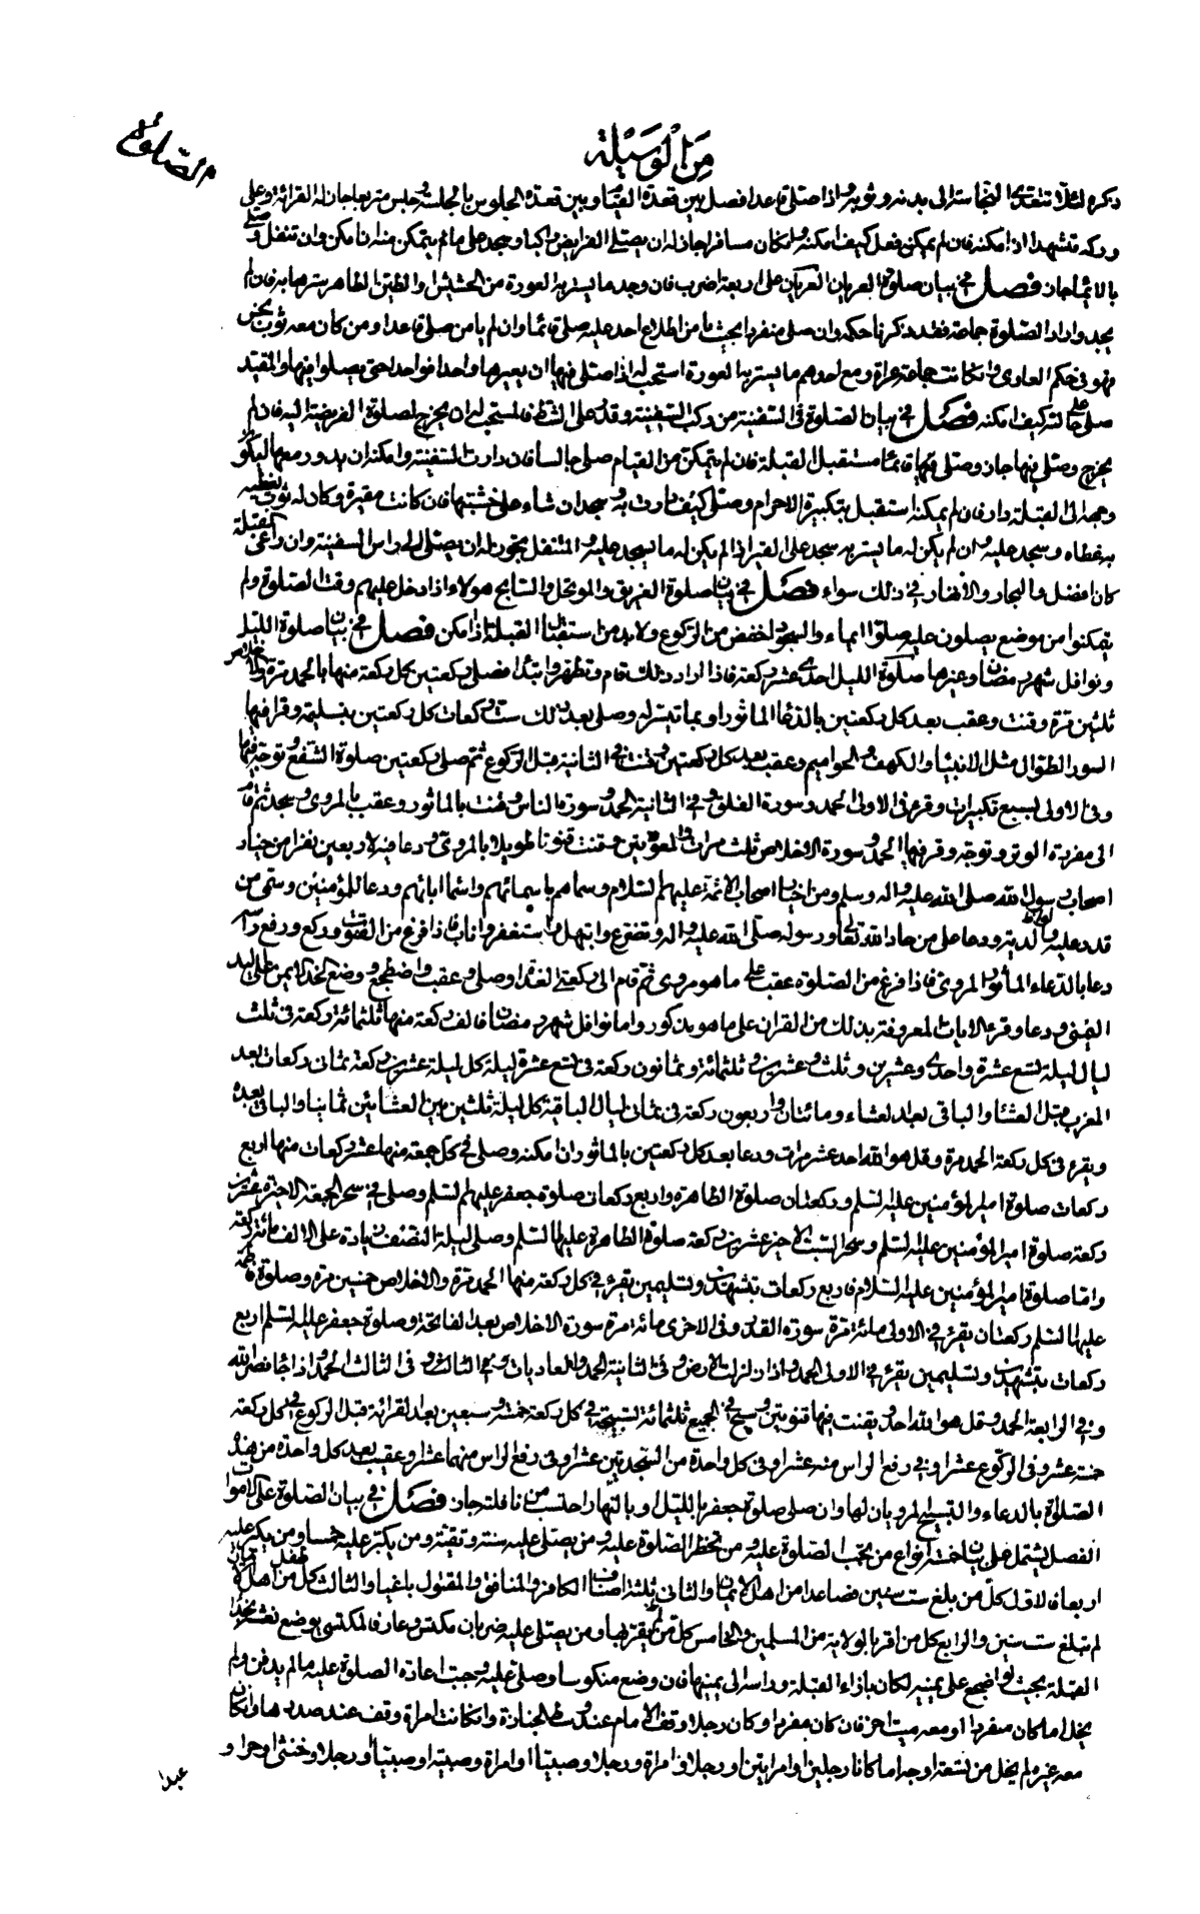 الصلوة
من الوسيلة
ذكره لئلا تتعدى النجاسة الى بدنه وثوبه واذا صلى قاعدا فصل بين قعدة القيام وبين قعدة الجلوس بالجلسة وجلس متربعا جاز له القرائة وعلى
وركه متشهدا اذا امكنه فان لم يمكن فعل كيف امكنه وان كان مسافرا جاز له ان يصلى الفرايض راكبا وسجد على ما لم يتمكن منه ان امكن وان تنفل وصلى
بالايماء جاز فصل فى بيان صلوة العريان العريان على اربعة اضرب فان وجد ما يستر به العورة من الحشيش او الطين الطاهر سترها به فان لم
يجد واراد الصلوة جماعة فقد ذكرنا حكمه وان صلى منفردا بحيث يامن اطلاع احد عليه صلى قائما وان لم يامن صلى قاعدا ومن كان معه ثوب نجس
فهو فى حكم العارى وان كانت جماعة عراة ومع احدهم ما يستر به العورة استحب له اذا صلى فيها ان يعيرها واحدا فواحدا حتى يصلوا فيها والمقيد
صلى على حالته كيف امكنه فصل فى بيان الصلوة فى السفينة من ركب السفينة وقدر على الشط فالمستحب له ان يخرج لصلوة الفريضة اليه فان لم
يخرج وصلى فيها جاز وصلى فيها قائما مستقبل القبلة فان لم يتمكن من القيام صلى جالسا فان دارت السفينة وامكنه ان يدور معها ليكون
وجهه الى القبلة دار فان لم يمكنه استقبل بتكبيرة الاحرام وصلى كيف دارت به وسجد ان شاء على خشبتها فان كانت مقيرة وكان له ثوب يغطيه
به غطاه وسجد عليه وان لم يكن له ما يستر به سجد على القير اذا لم يكن له ما يسجد عليه والمتنفل يجوز له ان يصلى الى راس السفينة وان راعى القبلة
كان افضل والبحار والانهار فى ذلك سواء فصل فى بيان صلوة الغريق والموتحل والسابح هولاء اذا دخل عليهم وقت الصلوة ولم
يتمكنوا من موضع يصلون عليه صلوا ايماء والسجود اخفض من الركوع ولا بد من استقبال القبلة اذا امكن فصل فى بيان صلوة الليل
ونوافل شهر رمضان وغيرها صلوة الليل احدى عشر ركعة فاذا اراد ذلك قام وتطهر وابتدا فصلى ركعتين بكل ركعة منها بالحمد مرة والاخلاص
ثلثين مرة وقنت وعقب بعد كل ركعتين بالدعاء الماثور او بما تيسر له وصلى بعد ذلك ست ركعات كل ركعتين بتسليمة وقرا فيها
السور الطوال مثل الانبياء والكهف والحواميم وعقب بعد كل ركعتين وقنت فى الثانية قبل الركوع ثم صلى ركعتين صلوة الشفع وتوجه فيها
وفى الاولى بسبع تكبيرات وقرء فى الاولى الحمد وسورة الفلق وفى الثانية الحمد وسورة الناس وقنت بالماثور وعقب بالمروى وسجد ثم قام
الى مفردة الوتر وتوجه وقرا فيها الحمد وسورة الاخلاص ثلث مرات والمعوذتين وقنت قنوتا طويلا بالمروى ودعا فيه لاربعين نفرا من خيار
اصحاب رسول الله صلى الله عليه واله وسلم ومن خيار اصحاب الائمة عليهم السلام وسماهم باسمائهم واسماء ابائهم ودعا للمؤمنين وسمى من
قدر عليه ولوالديه ودعا على من حاد الله تعالى ورسوله صلى الله عليه واله وتضرع وابتهل واستغفر واناب فاذا فرغ من القنوت وركع ورفع راسه
دعا بالدعاء الماثور المروى فاذا فرغ من الصلوة عقب على ما هو مروى ثم قام الى ركعتى الغداة وصلى وعقب واضطجع ووضع خده الايمن على اليد
اليمنى ودعا وقرء الايات المعروفة بذلك من القران على ما هو مذكور واما نوافل شهر رمضان فالف ركعة منها ثلثمائة ركعة فى ثلث
ليال ليلة تسع عشرة واحدى وعشرين وثلث وعشرين وثلثمائة وثمانون ركعة فى تسع عشرة ليلة كل ليلة عشرين ركعة ثمان ركعات بعد
المغرب قبل العشاء والباقى بعد العشاء ومائتان واربعون ركعة فى ثمانى ليال الباقية كل ليلة ثلثين بين العشائين ثمانيا والباقى بعده
ويقرء فى كل ركعة الحمد مرة وقل هو الله احد عشر مرات ودعا بعد كل ركعتين بالماثور ان امكنه وصلى فى كل جمعة منها عشر ركعات منها اربع
ركعات صلوة امير المؤمنين عليه السلم وركعتان صلوة الطاهرة واربع ركعات صلوة جعفر عليهم السلم وصلى فى سحر الجمعة الاخيرة عشرين
ركعة صلوة امير المؤمنين عليه السلم وسحر السبت الاخير عشرين ركعة صلوة الطاهرة عليها السلم وصلى ليلة النصف زيادة على الالف مائة ركعة
واما صلوة امير المؤمنين عليه السلام فاربع ركعات بتشهدين وتسليمين يقرء فى كل ركعة منها الحمد مرة والاخلاص خمسين مرة وصلوة فاطمة
عليها السلم ركعتان يقرء فى الاولى مائة مرة سورة القدر وفى الاخرى مائة مرة سورة الاخلاص بعد الفاتحة وصلوة جعفر عليه السلم اربع
ركعات بتشهدين وتسليمين يقرء فى الاولى الحمد واذا زلزلت الارض وفى الثانية الحمد والعاديات وفى الثالث وفى الثالث الحمد واذا جاء نصر الله
وفى الرابعة الحمد وقل هو الله احد ويقنت فيها قنوتين ويسبح فى الجميع ثلثمائة تسبيحة فى كل ركعة خمسة وسبعين بعد القرائة قبل الركوع فى كل ركعة
خمسة عشر وفى الركوع عشرا وفى رفع الراس منه عشرا وفى كل واحدة من السجدتين عشرا وفى رفع الراس منهما عشرا وعقيب بعد كل واحدة من هذه
الصلوة بالدعاء والتسبيح المرويان لها وان صلى صلوة جعفر بالليل او بالنهار احتسب من نافلته جاز فصل فى بيان الصلوة على الاموات
الفصل يشتمل على بيان خمسة انواع من يجب الصلوة عليه ومن تحظر الصلوة عليه ومن يصلى عليه سنة وتقية ومن يكبر عليه خمسا ومن يكبر عليه
اربعا فالاول كل من بلغ ست سنين فصاعدا من اهل الايمان والثانى ثلثة اصناف الكافر والمنافق والمقتول باغيا والثالث كل من اهل الايمان
لم تبلغ ست سنين والرابع كل من اقر بالولاية من المسلمين والخامس كل من لم يقر بها ومن يصلى عليه ضربان مكتس وعار فالمكتسى يوضع نعشه تجاه
القبلة بحيث لو اضجع على يمينه لكان بازاء القبلة وراسه الى يمينها فان وضع منكوسا وصلى عليه وجب اعادة الصلوة عليه ما لم يدفن ولم
يخل اما كان منفردا او معه ميت اخر فان كان مفردا وكان رجلا وقف الامام عند وسط الجنازة وان كانت امراة وقف عند صدرها وان كان
معه غيره لم يخل من تسعة اوجه اما كانا رجلين او امراتين او رجلا وامراة او رجلا وصبيا او امراة وصبية او صبيا او رجلا وخنثى او حرا و
عبدا